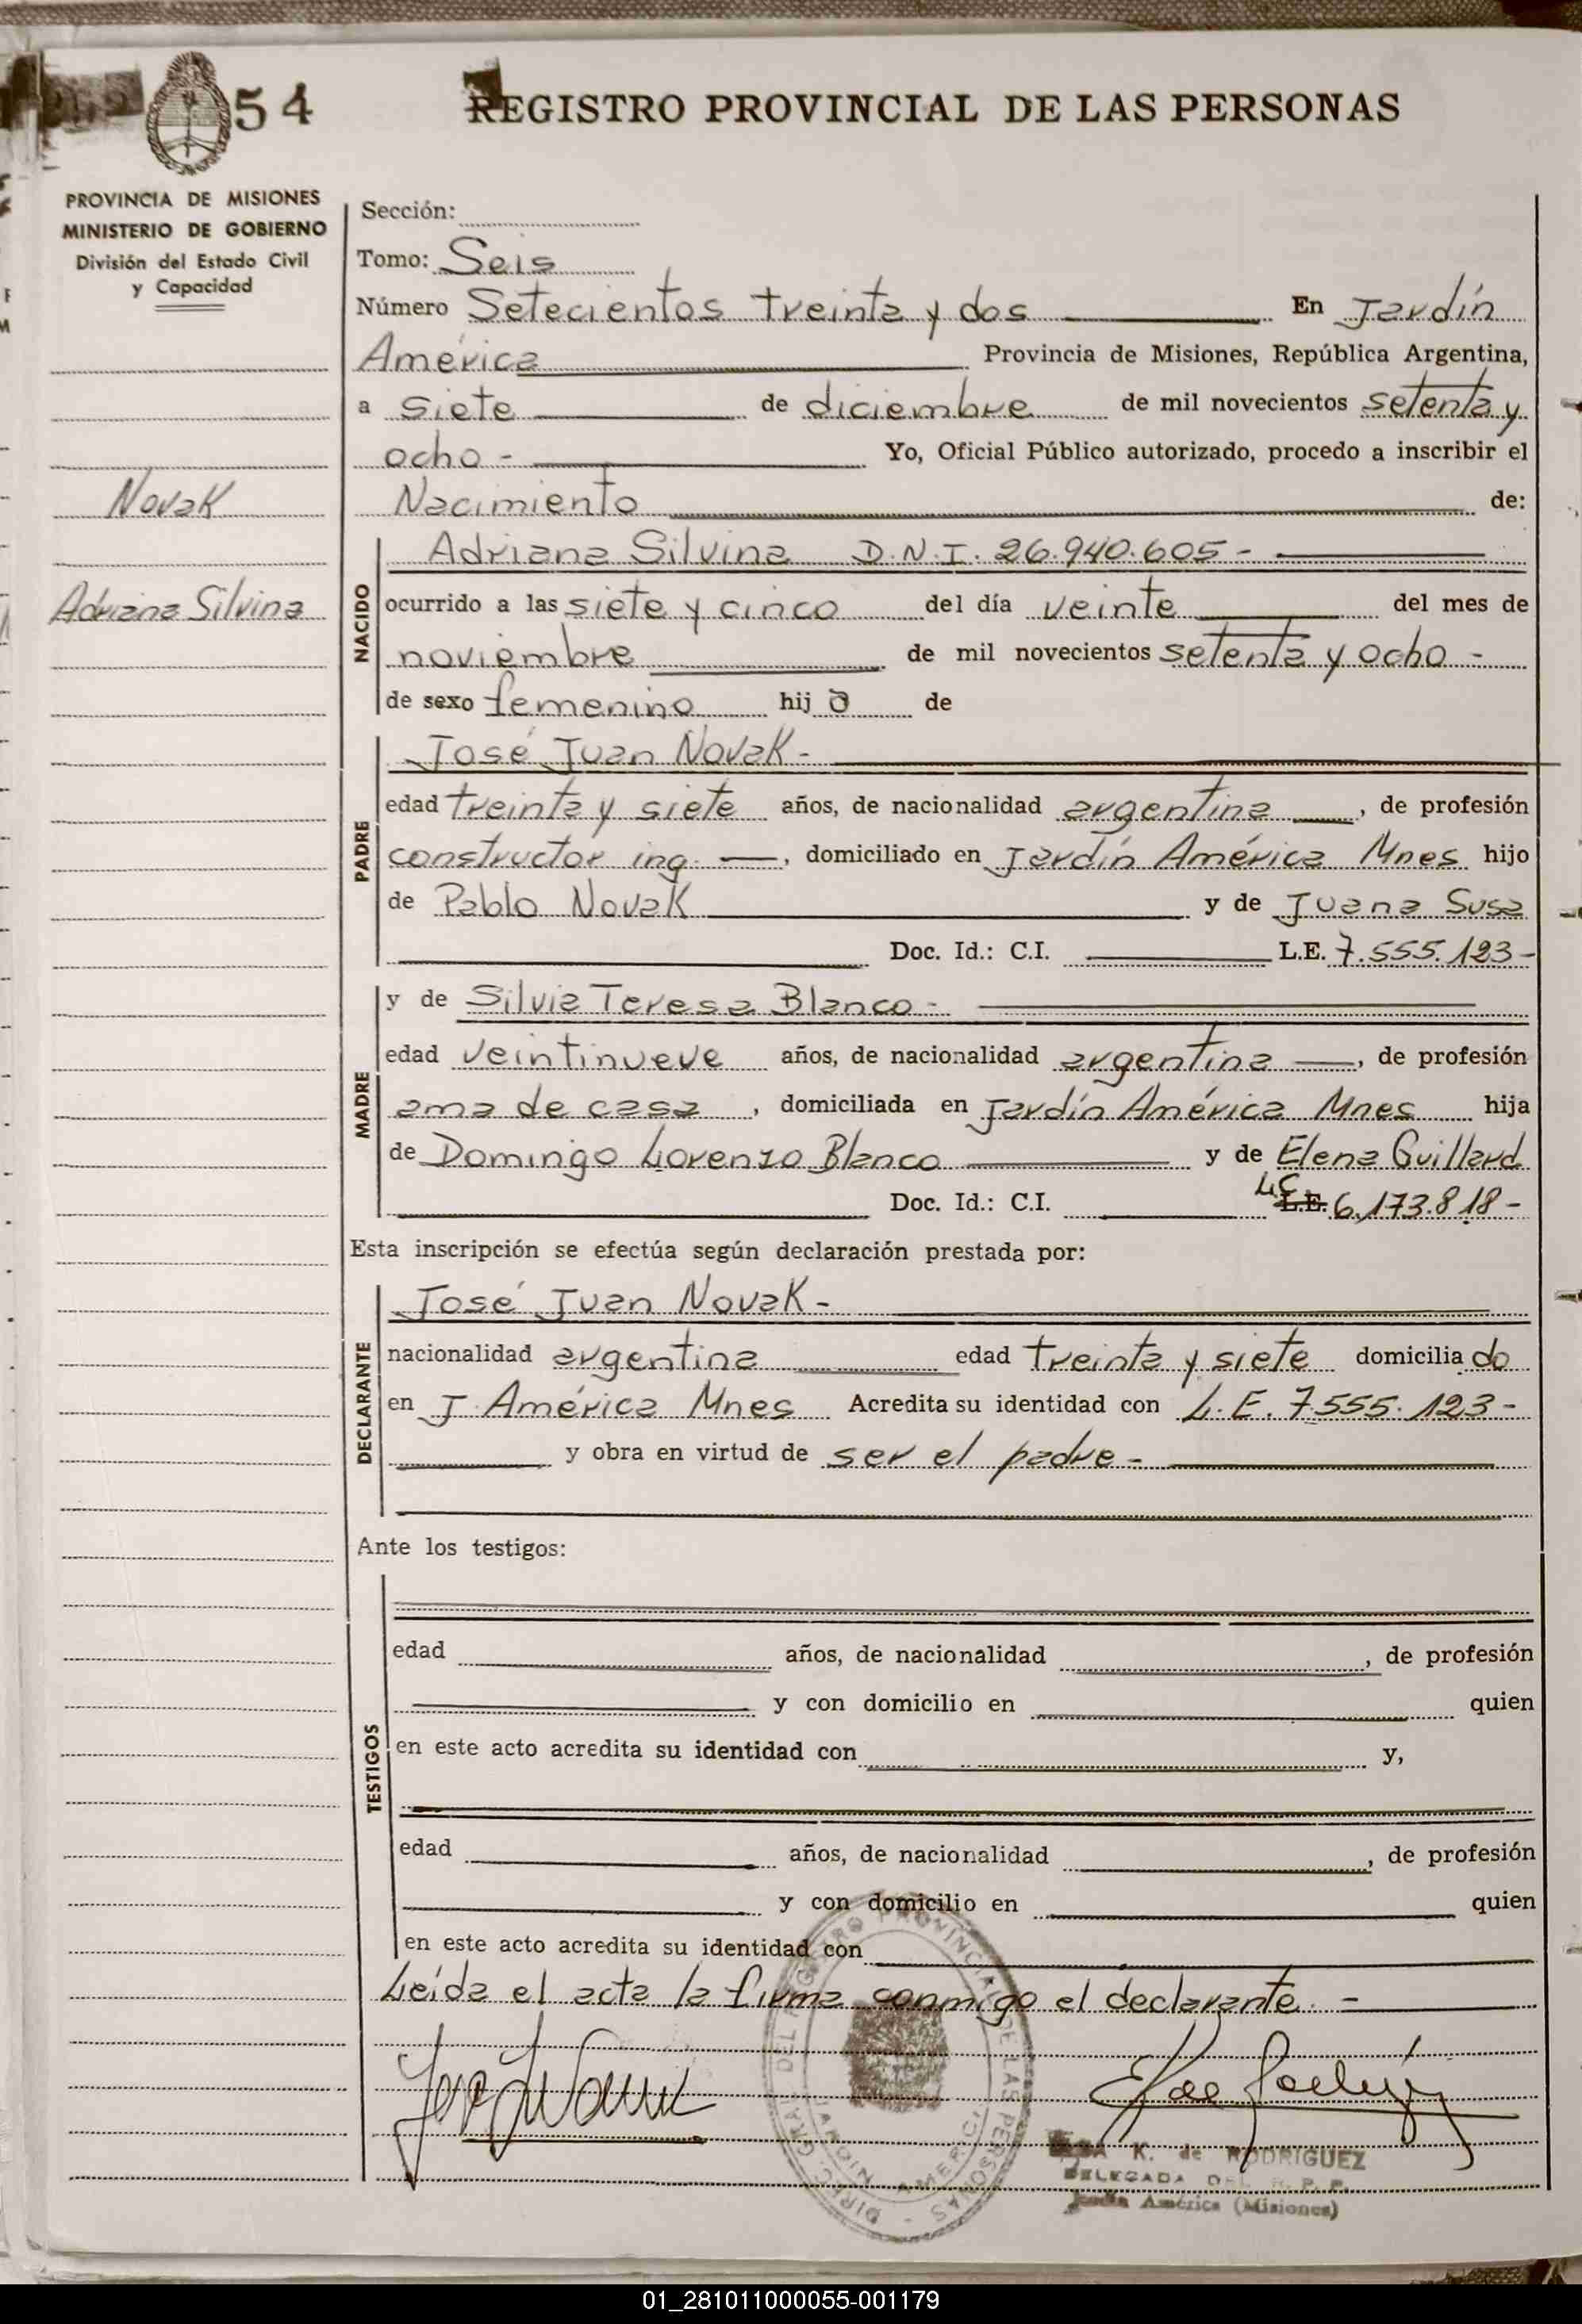 54
REGISTRO PROVINCIAL DE LAS PERSONAS
PROVINCIA DE MISIONES
MINISTERIO DE GOBIERNO
División del Estado Civil
y Capacidad
Novak
Adriana Silvina
Sección:
Tomo: Seis
Número Setecientos treinta y dos En Jardín
América Provincia de Misiones, República Argentina,
a siete de diciembre de mil novecientos setenta y
ocho - Yo, Oficial Público autorizado, procedo a inscribir el
Nacimiento de:
NACIDO
Adriana Silvina D.N.I. 26.940.605 -
ocurrido a las siete y cinco del día veinte del mes de
noviembre de mil novecientos setenta y ocho -
de sexo femenino hij a de
PADRE
José Juan Novak -
edad treinta y siete años, de nacionalidad argentina, de profesión
constructor ing. , domiciliado en Jardín América Mnes hijo
de Pablo Novak y de Juana Susa
Doc. Id.: C.I. L.E. 7.555.123 -
MADRE
y de Silvia Teresa Blanco -
edad veintinueve años, de nacionalidad argentina , de profesión
ama de casa , domiciliada en Jardín América Mnes hija
de Domingo Lorenzo Blanco y de Elena Guillard
Doc. Id.: C.I. L.C. L.E. 6.173.818 -
Esta inscripción se efectúa según declaración prestada por:
DECLARANTE
José Juan Novak -
nacionalidad argentina edad treinta y siete domicilia do
en J. América Mnes Acredita su identidad con L.E. 7.555.123 -
y obra en virtud de ser el padre -
Ante los testigos:
TESTIGOS
edad años, de nacionalidad , de profesión
y con domicilio en quien
en este acto acredita su identidad con y,
edad años, de nacionalidad , de profesión
y con domicilio en quien
en este acto acredita su identidad con
Leída el acta la firma conmigo el declarante. -
DIREC. GRAL. DEL REGISTRO PROVINCIAL DE LAS PERSONAS -
K. de RODRIGUEZ
DELEGADA DEL R. P. P.
Jardín América (Misiones)
01_281011000055-001179